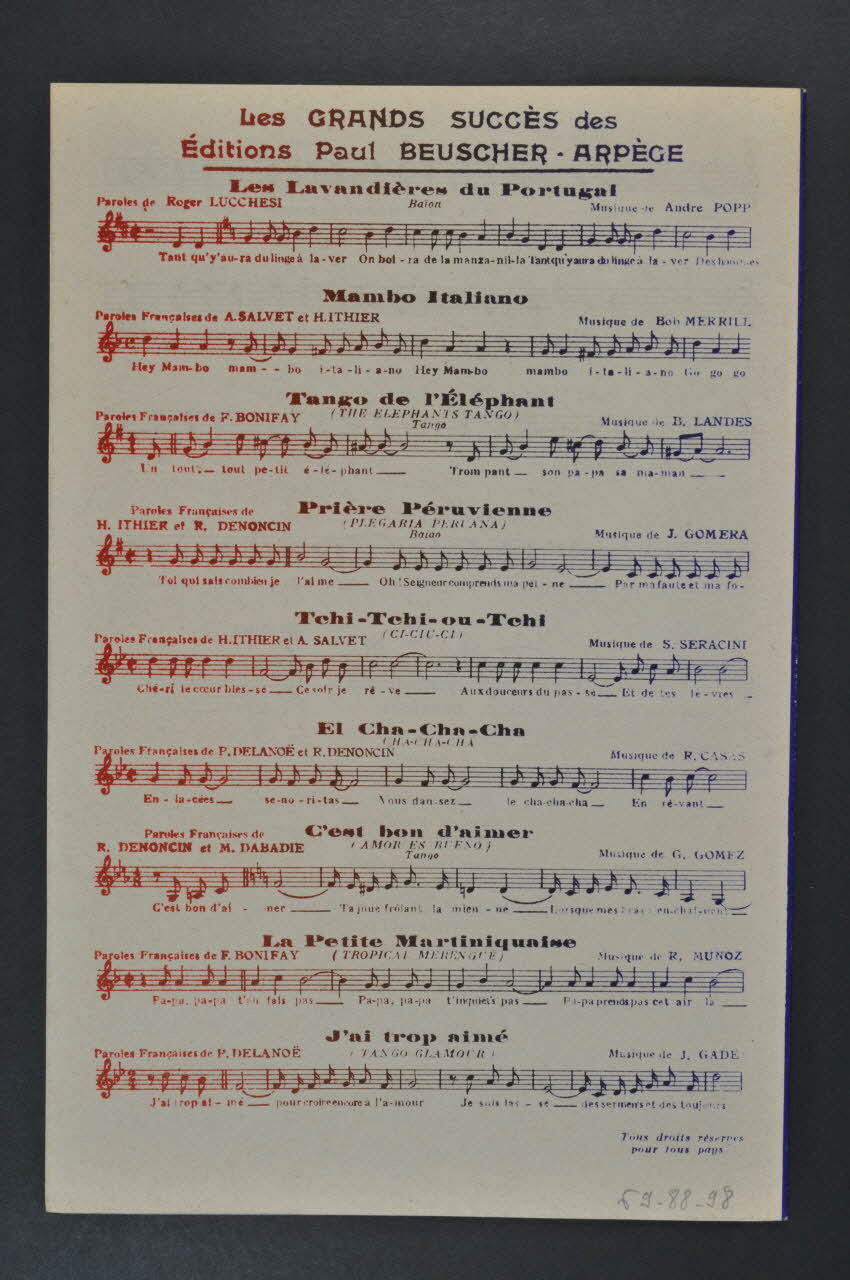 Les GRANDS SUCCÈS des
Éditions Paul BEUSCHER - ARPÈGE
Les Lavandières du Portugal
Paroles de Roger LUCCHESI Baïon Musique de Andre POPP
Tant qu'y'au-ra du linge à la-ver On boi-ra de la manza-nil-la Tant qu'y aura du linge à la-ver Des hommes
Mambo Italiano
Paroles Françaises de A. SALVET et H. ITHIER Musique de Bob MERRILL
Hey Mam-bo mam--bo i-ta-li-a-no Hey Mam-bo mambo i-ta-li-a-no Go go go
Tango de l'Éléphant
Paroles Françaises de F. BONIFAY (THE ELEPHANTS TANGO) Musique de B. LANDES
Tango
Un tout, tout pe-tit é-lé-phant Trompant son pa-pa sa ma-man
Prière Péruvienne
Paroles Françaises de
H. ITHIER et R. DENONCIN (PLEGARIA PERUANA)
Baiao Musique de J. GOMERA
Toi qui sais combien je l'ai me Oh! Seigneur comprends ma pei-ne Par ma faute et ma fo-
Tchi-Tchi-ou-Tchi
Paroles Françaises de H. ITHIER et A. SALVET (CI-CIU-CI) Musique de S. SERACINI
Ché-ri le cœur bles-sé Ce soir je rê-ve Aux douceurs du pas-sé Et de tes lèvres
El Cha-Cha-Cha
CHA-CHA-CHA
Paroles Françaises de P. DELANOË et R. DENONCIN Musique de R. CASAS
En-la-cées se-no-ri-tas Vous dan-sez le cha-cha-cha En rê-vant
C'est bon d'aimer
Paroles Françaises de
R. DENONCIN et M. DABADIE (AMOR ES BUENO)
Tango Musique de G. GOMEZ
C'est bon d'ai-mer Ta joue frôlant la mien-ne Lorsque mes bras
La Petite Martiniquaise
Paroles Françaises de F. BONIFAY (TROPICAL MERENGUE) Musique de R. MUNOZ
Pa-pa, pa-pa t'en fais pas Pa-pa, pa-pa t'inquiet's pas Pa-pa prends pas cet air là
J'ai trop aimé
Paroles Françaises de P. DELANOË (TANGO GLAMOUR) Musique de J. GADE
J'ai trop ai-mé pour croire encore à l'a-mour Je suis las-sé des serments et des toujours
Tous droits réservés
pour tous pays
59-88-98